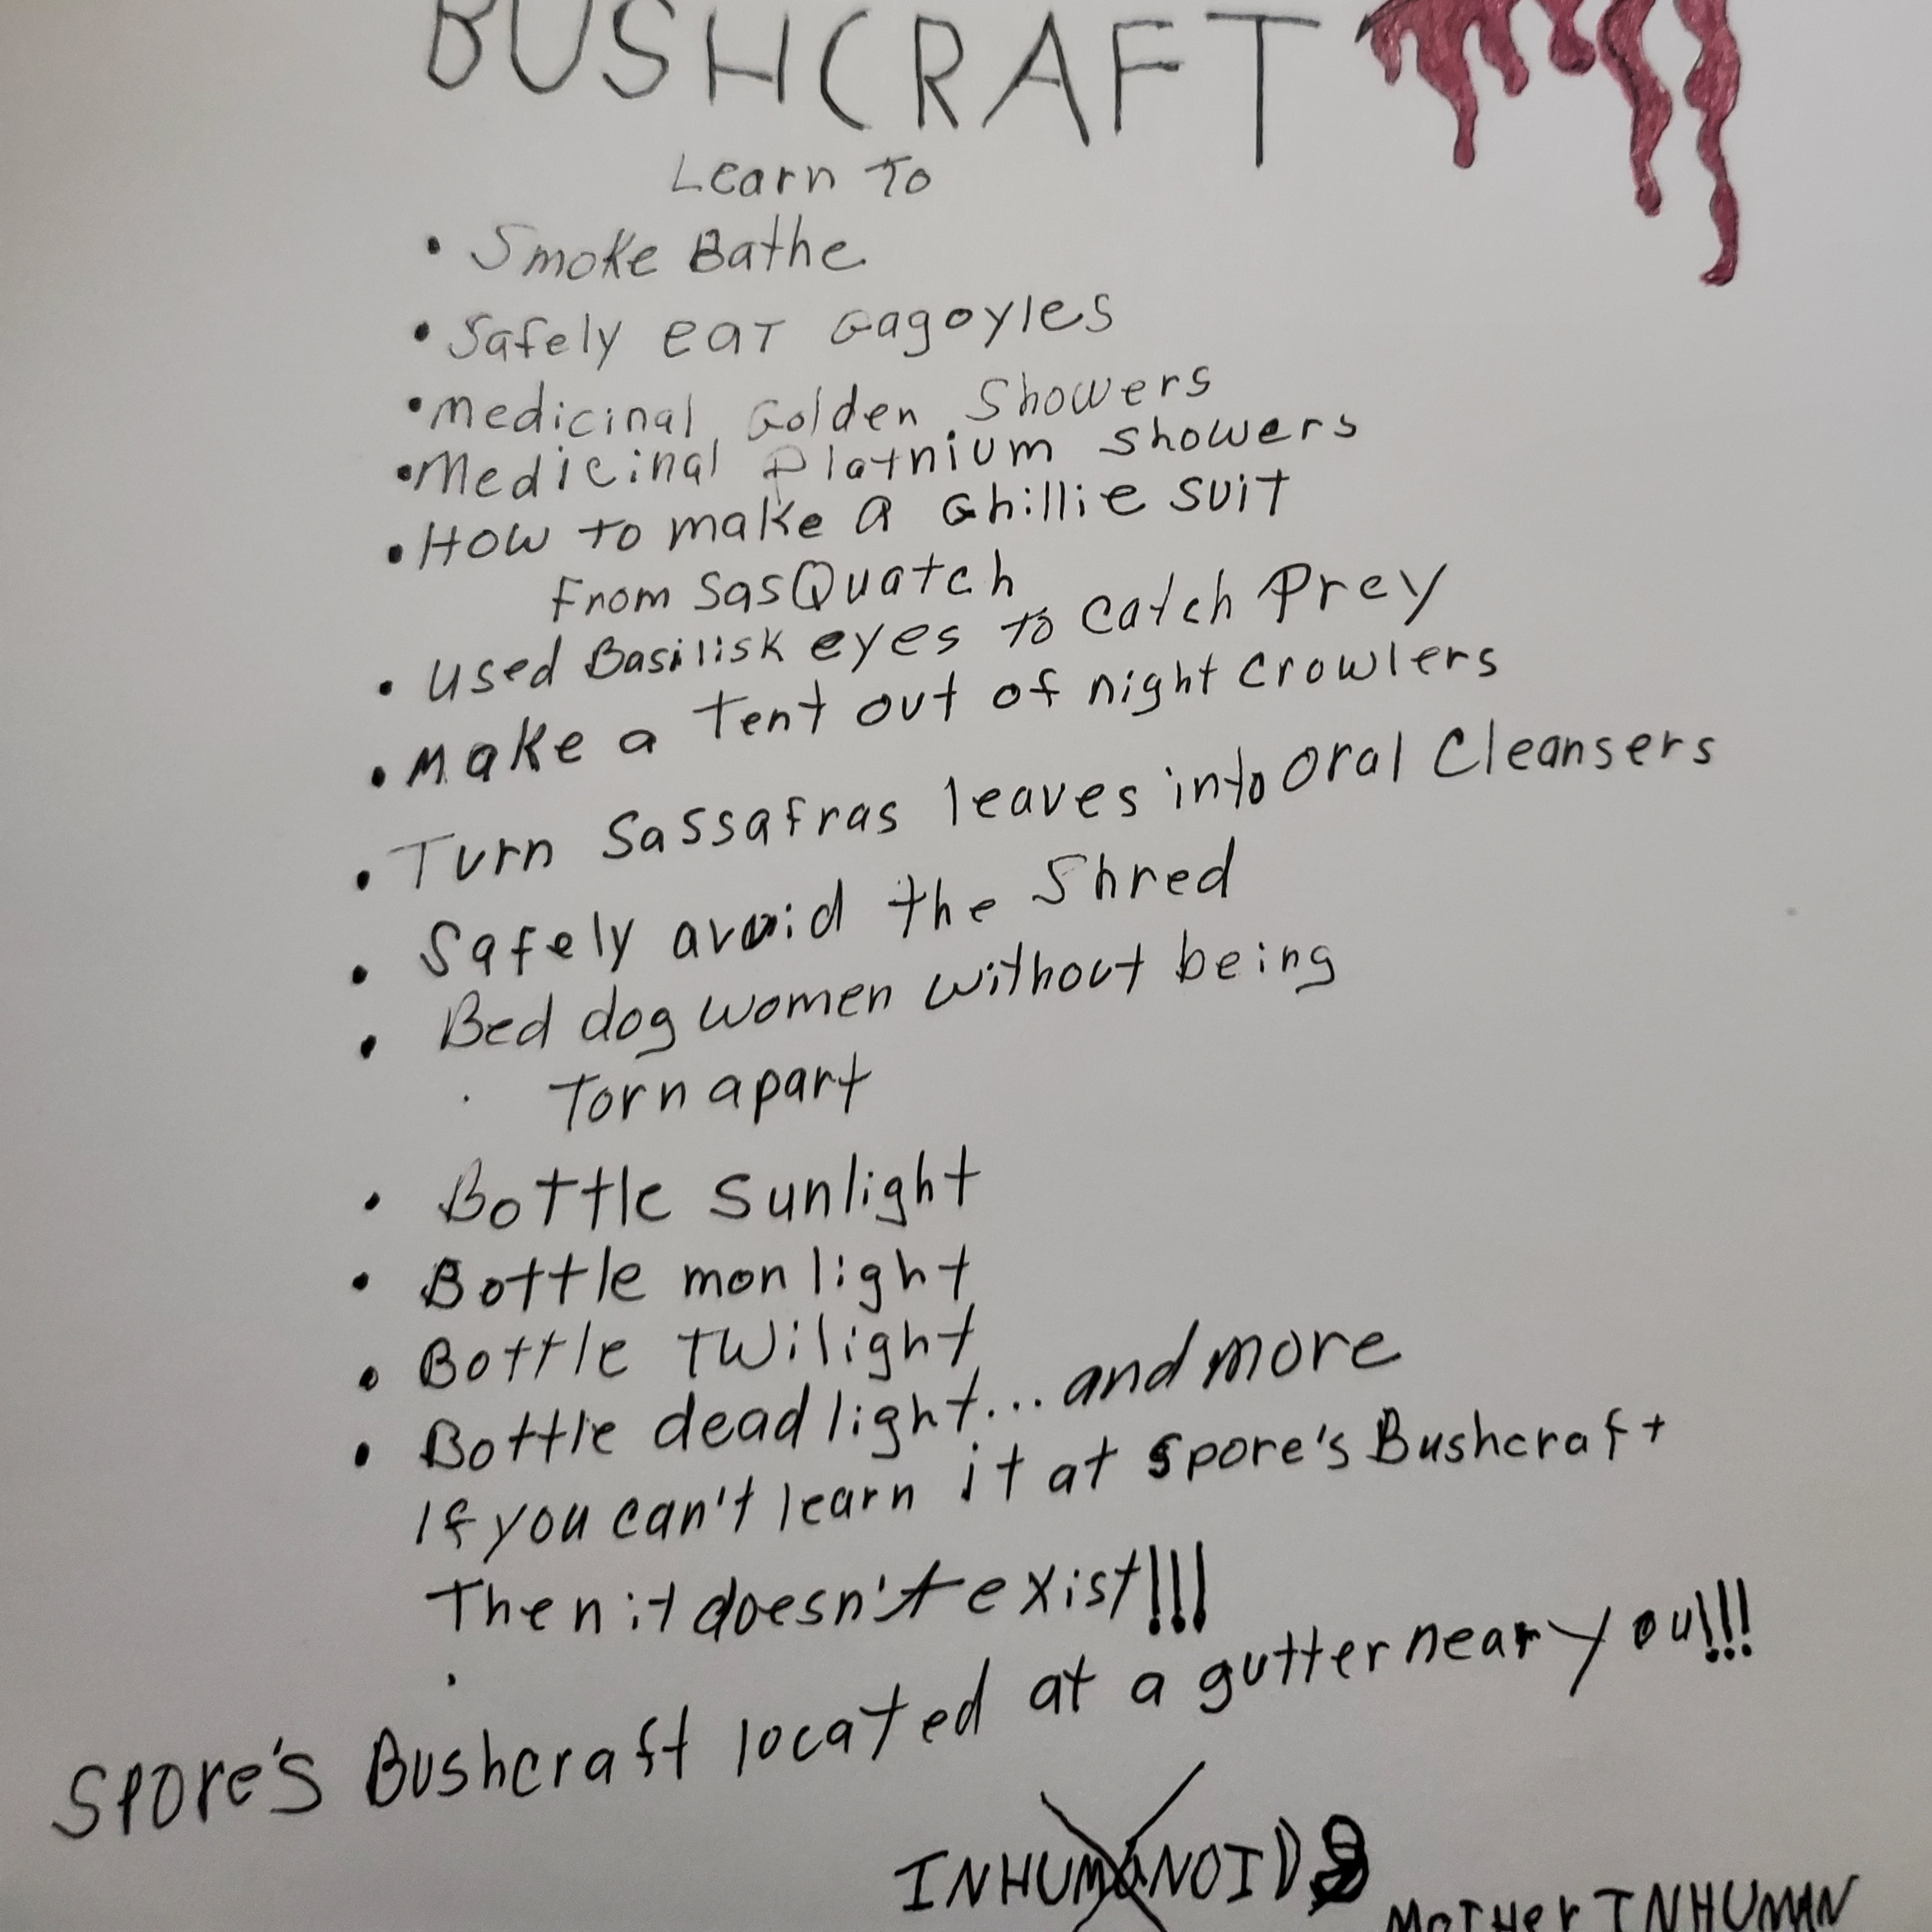 BUSHCRAFT
Learn To
• Smoke Bathe
• Safely eat Gagoyles
• Medicinal Golden Showers
• Medicinal Platnium showers
• How to make a Ghillie suit
From SasQuatch
• Used Basilisk eyes to catch Prey
• Make a Tent out of night crowlers
• Turn Sassafras leaves into oral Cleansers
• Safely avoid the Shred
• Bed dog women without being
Torn apart
• Bottle sunlight
• Bottle monlight
• Bottle Twilight
• Bottle deadlight... and more
If you can't learn it at spore's Bushcraft
Then it doesn't exist!!!
Spore's Bushcraft located at a gutter near you!!!
INHUMANOIDS
MOTHER INHUMAN